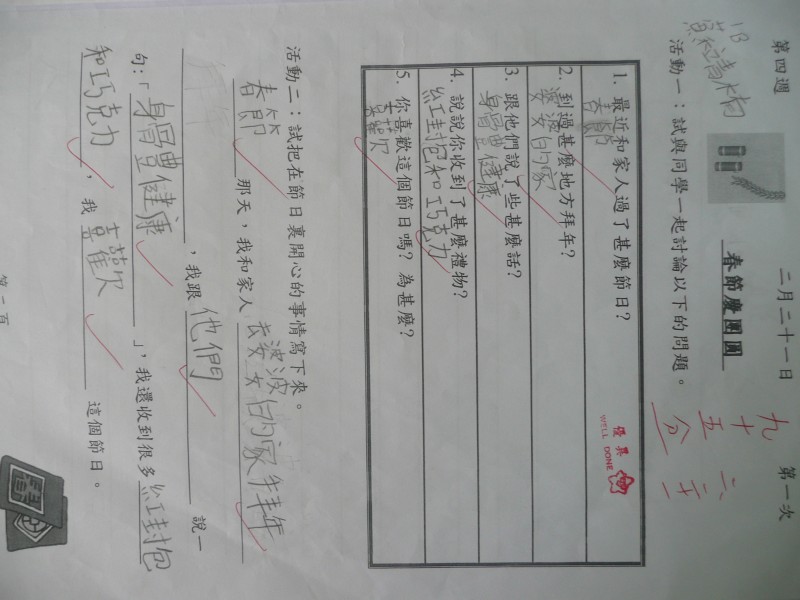 第四週 二月二十一日 第一次
1B
春節慶團圓
九十五分
活動一：試與同學一起討論以下的問題。
優異
WELL DONE
1. 最近和家人過了甚麼節日？
春節
2. 到過甚麼地方拜年？
婆婆的家
3. 跟他們說了些甚麼話？
身體健康
4. 說說你收到了甚麼禮物？
紅封包和巧克力
5. 你喜歡這個節日嗎？為甚麼？
喜歡
活動二：試把在節日裏開心的事情寫下來。
春節 那天，我和家人 去婆婆的家拜年
，我跟 他們 說一
句：「身體健康」，我還收到很多紅封包
和巧克力，我 喜歡 這個節日。
第二頁